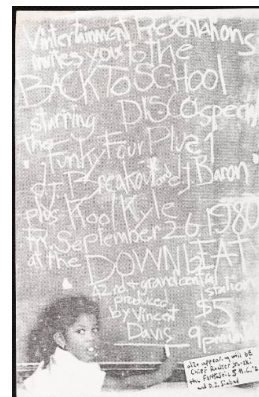 Vintertainment Presentations
invites you to the
BACK TO SCHOOL
DISCO special
starring
the Funky Four Plus 1
dj Breakout & dj Baron
plus Kool Kyle
fri. September 26, 1980
at the DOWNBEAT
42nd & grand central
station
produced
by Vincent
Davis
9 pm
also appearing will be
Chief Rocker
the FANTASTIC 5 M.C.'s
and D.J.